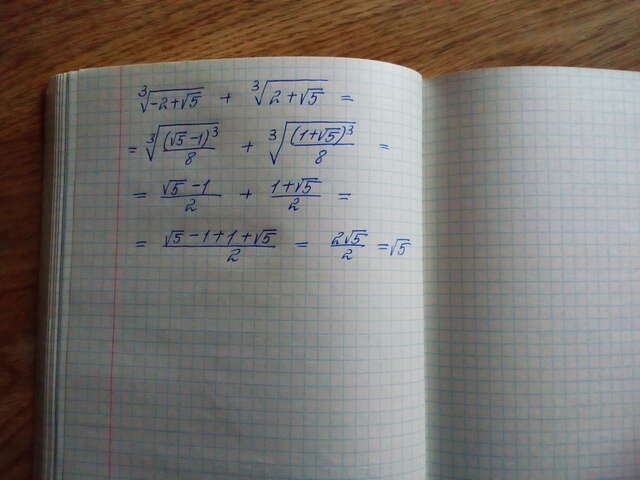 ∛(-2+√5) + ∛(2+√5) =
= ∛((√5-1)³/8) + ∛((1+√5)³/8) =
= (√5-1)/2 + (1+√5)/2 =
= (√5-1+1+√5)/2 = 2√5/2 =√5